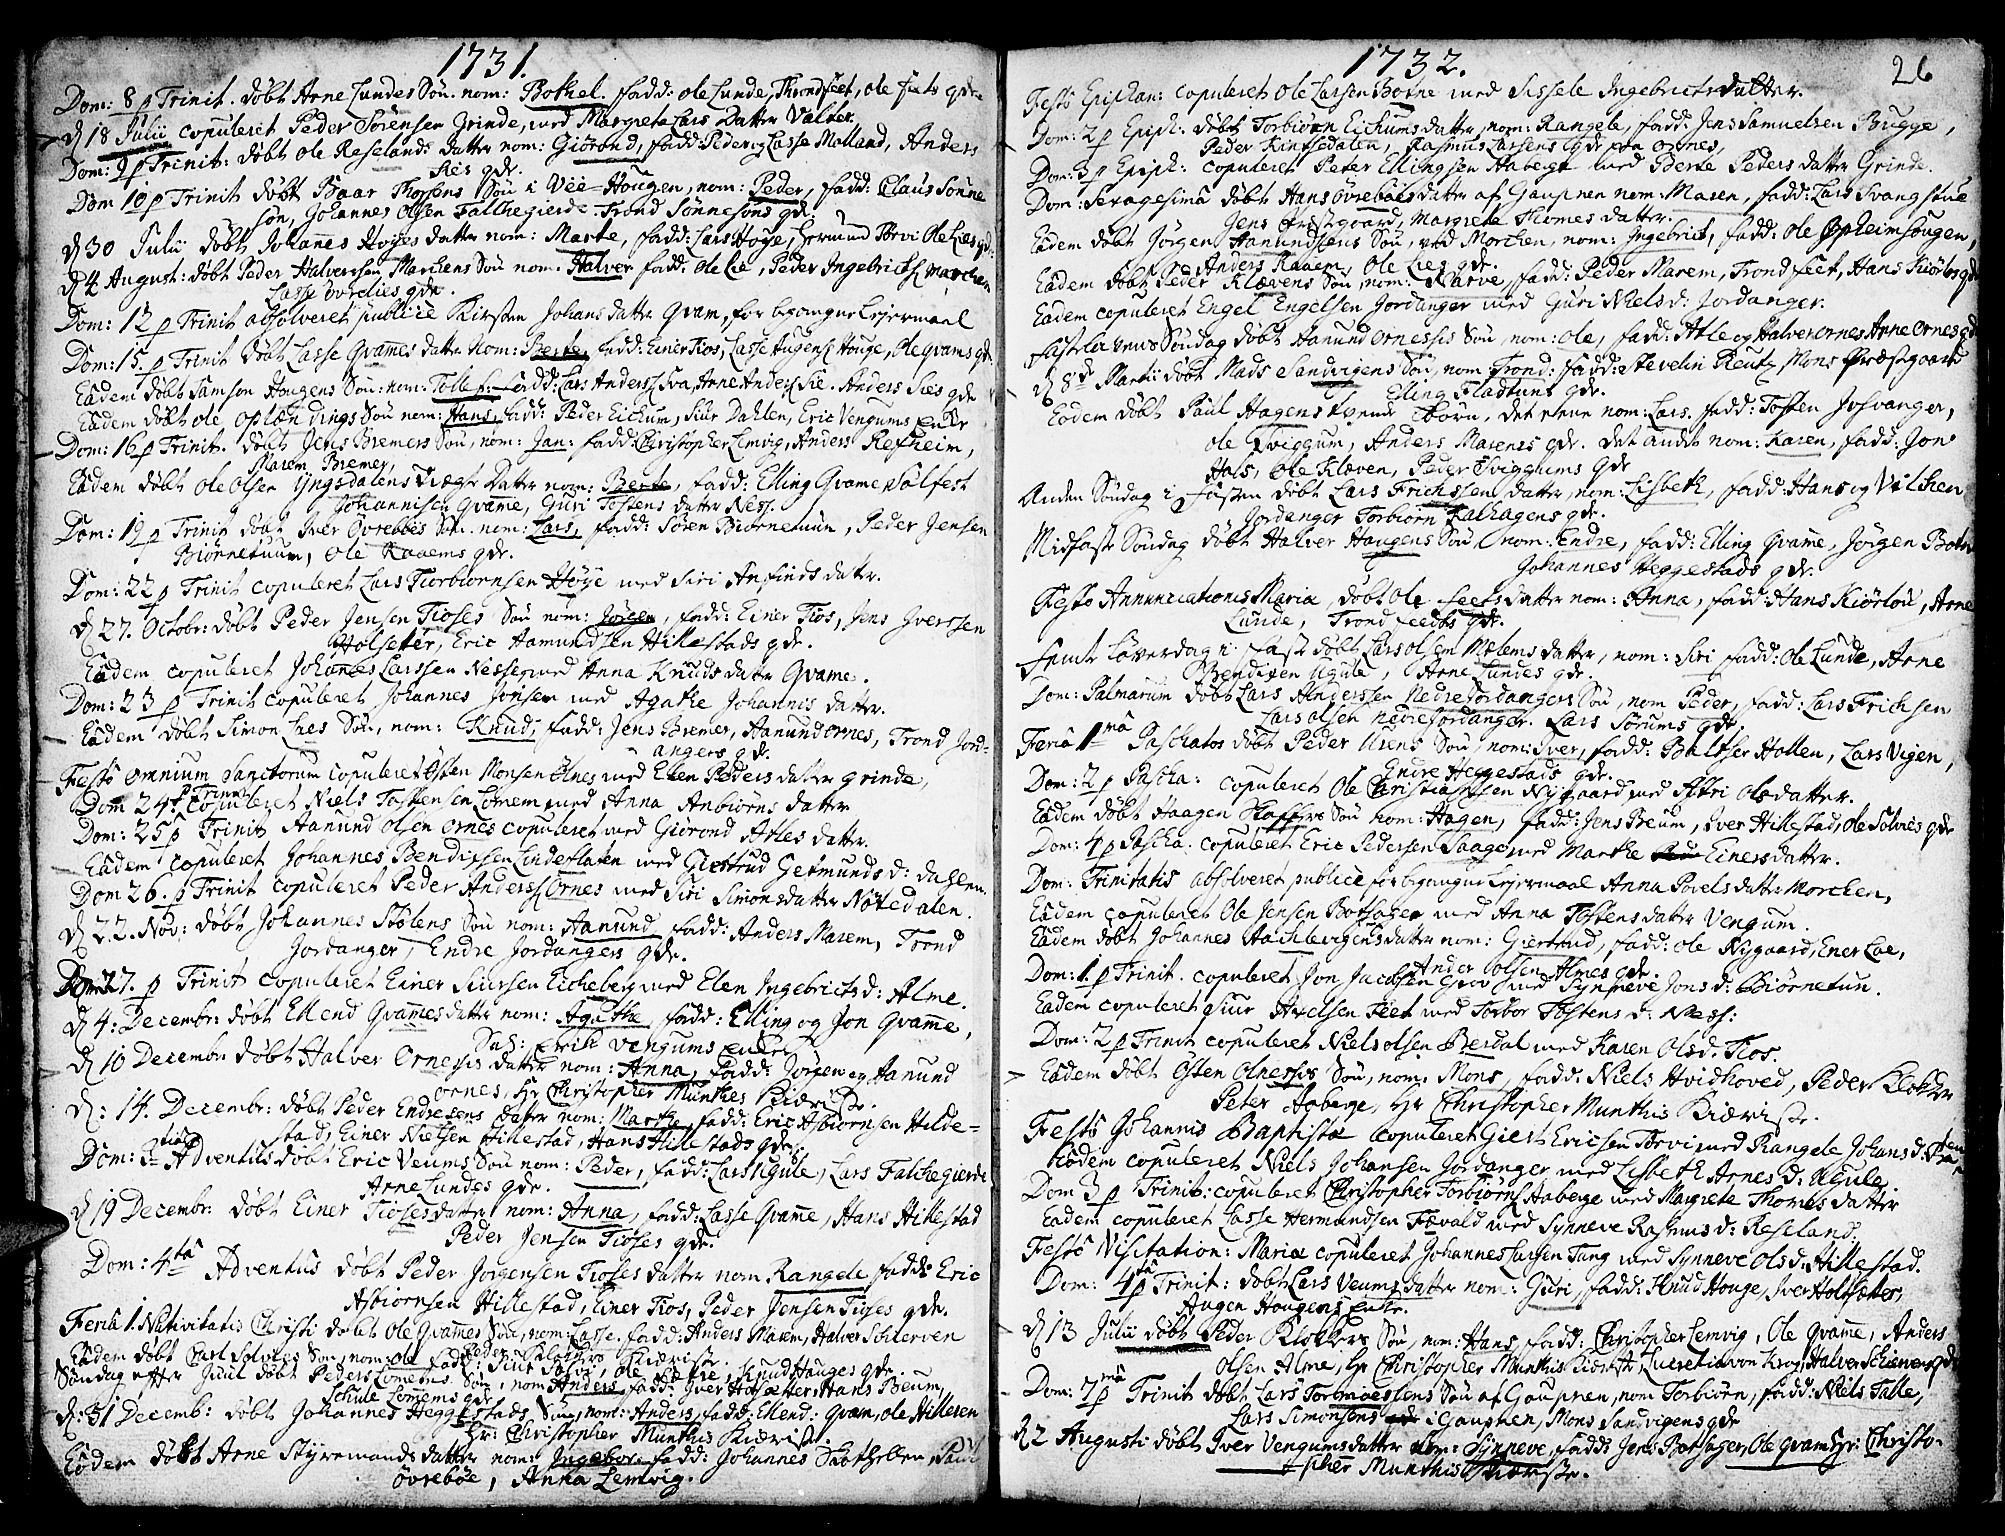 1731.
Dom: 8 p Trinit. döbt Arne Lundes Sön. nom: Bothel. fadd: Ole Lunde, Trond feet, Ole
d 18 Julii copuleret Peder Sörensen Grinde, med Margreta Lars Datter Valter.
Dom: 9 p Trinit: döbt Ole Reselands datter nom: Giörond, fadd: Peder og Lasse Molland, Anders
Ries gdr.
Dom 10 p Trinit döbt Baar Thorsons Sön i Vee-Hougen, nom: Peder, fadd: Claus Sönne
sön, Johannes Olsen Falchegierde. Trond Sönnesöns gdr.
d 30 Julii döbt Johannes Höyes datter nom: Marte, fadd: Lars Höye, Hermund Törvi Ole Lies gdr:
d 4 August: döbt Peder Halversen Marchens Sön nom: Halver fadd: Ole Lie, Peder Ingebrichs: Marchen
Lasse övrelies gdr.
Dom: 13 p Trinit absolveret publice Kirsten Johans datter Qvam, for begangne Lejermaal
Dom: 15. p Trinit döbt Lasse Qvames datter Nom: Berte, fadd: Einer Tios, Lasse Augens: Houge, Ole Qvams gdr.
Eadem döbt Samson Hougens Sön: nom: Tolle fadd: Lars Anders: Sva, Arne Anders: Sie. Anders Sies gdr
Eadem döbt ole Oplændings Sön nom: Hans, fadd: Peder Eichum, Siur Dahlen, Eric Vengums Enke
Dom: 16 p Trinit. döbt Jens Bremers Sön, nom: Jan: fadd: Christopher Lemvig, Anders Refheim,
Maren Bremer,
Eadem döbt Ole Olsen Yngsdalens Datter nom: Berte, fadd: Elling Qvame, Sölfest
Johannisen Qvame, Guri Tostens datter Ness.
Dom: 19 p Trinit döbt Iver Övrebös Sön. nom: Lars, fadd: Sören Biörnetun, Peder Jensen
Biörnetuum, Ole Raaems gdr.
Dom: 22 p Trinit copuleret Lars Torbiornsen Höye med Siri Anfinds datter.
d 27. Octobr: döbt Peder Jensen Tioses Sön nom: Jörgen, fadd: Einer Tios, Jens Iverssen
Holseter, Eric Hamundsen Hillestads gdr.
Eadem copuleret Johanes Larssen Nesse med Anna Knuds datter Qvame.
Dom: 23 p Trinit copuleret Johannes Jonsen med Agathe Johannis datter.
Eadem döbt Simon Lies Sön, nom: Knud, fadd: Jens Bremer, Hanund Ornes, Trond Jord-
angers gdr.
Festo omnium Sanctorum copuleret Östen Monsen Ölnes med Elen Peders datter Grinde,
Dom 24 p Trinit copuleret Niels Tostensen Lomem med Anna Anbiörns datter
Dom: 25 p Trinit Hanund Olsen Ornes copuleret med Giörond Atles datter.
Eadem copuleret Johannes Bendixsen Lindeflaten med Giertrud Germunds d: dahlen.
Dom 26. p Trinit copuleret Peder Anders: Ornes med Siri Simonsdatter Nötedalen.
d 22. Nov: döbt Johannes Stölens Sön nom: Hanund, fadd: Anders Marem, Trond
Jordanger, Endre Jordangers gdr.
Dom 27. p Trinit copuleret Einer Siursen Eicheberg med Elen Ingebrictsd: Alme.
d 4: Decembr: döbt Ellend Qvames datter nom: Agathe, fadd: Elling og Jon Qvame,
Erik Vengums Enke
d 10 Decembr döbt Halver Ornesis datter nom: Anna, fadd: Jörgen og Hanund
Ornes, Hr Christopher Munthes Kiæriste.
d: 14. Decembr: döbt Peder Endresens datter nom: Marthe, fadd: Eric Asbiornsen Hilde-
stad, Einer Nielsen Hillestad, Hans Hillestads gdr.
Dom: 3tia Adventus döbt Eric Veums Sön nom: Peder, fadd: Lars Ugule, Lars Falchegierde
Arne Lundes gdr.
d 19 Decembr: döbt Einer Tioses datter nom: Anna, fadd: Lasse Qvame, Hans Hillestad
Peder Jensen Tioses gdr.
Dom: 4ta Adventus döbt Peder Jörgensen Tioses datter nom Rangele fadd: Eric
Asbiornsen Hillestad, Einer Tios, Peder Jensen Tioses gdr.
Feria 1. Nativitatis Christi döbt Ole Qvames Sön, nom: Lasse, fadd: Anders Marem, Halver Schierven
Peder Klokkers Kiæriste.
Eadem döbt Carl Solvies Sön, nom: Ole fadd: Siur Solvi, Ole Sætre, Knud Houges gdr.
Söndag efter Juul döbt Peders Lomems Sön, nom Anders, fadd: Iver Holsætter, Hans Beum,
Schule Lomems gdr
d: 31 Decemb: döbt Johannes Heggestads Sön, nom: Anders, fadd: Ellend: Qvam, Ole Hilleren
Hr: Christopher Munthis Kiæriste.
Eodem döbt Arne Styremands datter nom: Ingebor fadd: Johannes Paul
övreböe, Anna Lemvig.

1732.
26
Festo Epiphan: copuleret Ole Larsen Botne med Sissele Ingebrictsdatter.
Dom: 2 p Epiph: döbt Torbiörn Eichums datter, nom: Rangele, fadd: Jens Samuelsen Bugge,
Peder Kintsedalen, Rasmus Larsens gdr paa Ornes,
Dom: 3 p Epiph: copuleret Peter Ellingsen Aaberge med Berte Peders datter Grinde.
Dom: Sexagesima döbt Hans övrebös datter af Gaupnen nom: Maren, fadd: Lars Svangstue
Jens Prestgaard, Margrete Thomes datter.
Eadem döbt Jörgen Hanundsens Sön, ved Morchen, nom: Ingebrict, fadd: Ole Opheimsougen,
Anders Raaem, Ole Lies gdr.
Eadem döbt Peder Klævens Sön, nom: Narve, fadd: Peder Marem, Trond feet, Hans Kiörlos gdr
Eadem copuleret Engel Engelsen Jordanger med Guri Niels d: Jordanger.
fastelavens Söndag döbt Hanund Ornesis Sön, nom: Ole, fadd: Atle og Halver Ornes Arne Ornes gdr
d 8de Martii döbt Mads Sandvigens Sön, nom Trond: fadd: Stevelin Reutz Mons Præstgaard
Elling Fladtuns gdr.
Eodem döbt Paul Hagens tvende Börn, det eene nom: Lars. fadd: Tosten Josvanger,
Ole Kviggum, Anders Marems gdr. det andet nom: Karen, fadd: Jon
Hals, Ole Klæven, Peder Kviggums gdr
Anden Söndag i fasten döbt Lars Frichssen datter, nom: Lisbeth, fadd: Hans og Vilchen
Jordanger Torbiörn Kalhagens gdr.
Midfaste Söndag döbt Halver Haugens Sön nom: Endre, fadd: Elling Qvame, Jörgen Botn
Johannes Heggestads gdr.
Festo Annunciationis Mariæ, döbt Ole feets datter nom: Anna, fadd: Hans Kiörlou, Arne
Lunde, Trond feets gdr.
femte Löverdag i faste döbt Lars Olsen Mælems datter, nom: Siri fadd: Ole Lunde, Arne
Bendixen Ugule, Arne Lundes gdr.
Dom: Palmarum döbt Lars Anderssen Nedre Jordangers Sön, nom Peder, fadd: Lars Frichsen
Lars Olsen nedre Jordanger. Lars Sörums gdr.
Feria 1ma Paschatos döbt Peder Urens Sön, nom: Iver, fadd: Baltser Hollen, Lars Vigen,
Endre Heggestads gdr.
Dom: 2 p Pascha: copuleret Ole Christiansen Nygaard med Astri Olsdatter.
Eadem döbt Haagen Skaffers Sön nom: Hagen, fadd: Jens Beum, Iver Hillestad, Ole Solvies gdr
Dom: 4 p Pascha: copuleret Eric Pedersen Haage med Marthe Einersdatter.
Dom: Trinitatis absolveret publice for begangne Lejermaal Anna Povels datter Morchen,
Eadem copuleret Ole Jensen Bothager med Anna Tostens datter Vengum.
Eadem döbt Johannes datter nom: Giertrud, fadd: Ole Nygaard, Ener Loe,
Ander Olsen Almes gdr.
Dom: 1. p Trinit. copuleret Jon Jacobsen med Synneve Jons d: Biörnetun.
Eadem copuleret Siur Axelsen Feet med Torbor Tostens d: Næss:
Dom: 2 p Trinit copuleret Niels Olsen Berdal med Karen Ols d. Tios.
Eadem döbt Östen Olnessis Sön, nom: Mons, fadd: Niels Hvidhoved, Peder Klokker
Peter Aaberge, Hr Christopher Munthis Kiæriste.
Festo Johannis Baptistæ copuleret Giert Ericsen Törvi med Rangele Johans d:
Eodem copuleret Niels Johansen Jordanger med Lisbeth Arnes d: Ugule.
Dom 3 p Trinit: copuleret Christopher Torbiörns: Aaberge med Margrete Thomes datter
Eadem copuleret Lasse Hermundsen Fævold med Synneve Rasmus d: Reseland.
Festo Visitation: Mariæ copuleret Johannes Larsen Tang med Synneve Ols d: Hillestad.
Dom: 4 p Trinit: döbt Lars Veums datter nom: Guri, fadd: Knud Houge, Iver Holsæter,
Augen Hougens Enke.
d 13 Julii döbt Peder Klokkers Sön, nom: Hans, fadd: Christopher Lemvig, Ole Qvame, Anders
Olsen Alme, Hr Christopher Munthis Kiæriste, Lucretia von Krog, Halver Schiervens gdr
Dom: 7ma p Trinit döbt Lars Tormoessens Sön af Gaupnen, nom Torbiörn, fadd: Niels Talle,
Lars Simonsens i Gaupnen, Mons Sandvigens gdr
d 2 Augusti döbt Iver Vengums datter nom: Synneve, fadd: Jens Botsager, Ole Qvam Hr: Christo-
pher Munthis Kiæriste.